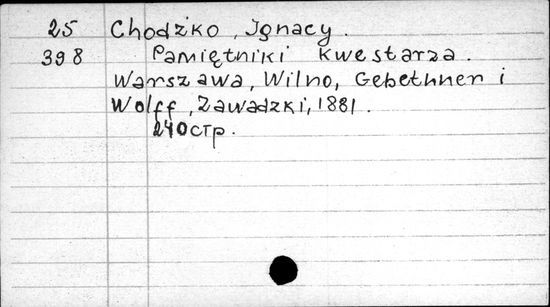 25 Chodźko, Ignacy.
398 Pamiętniki kwestarza.
Warszawa, Wilno, Gebethner i
Wolff, Zawadzki, 1881.
240 стр.